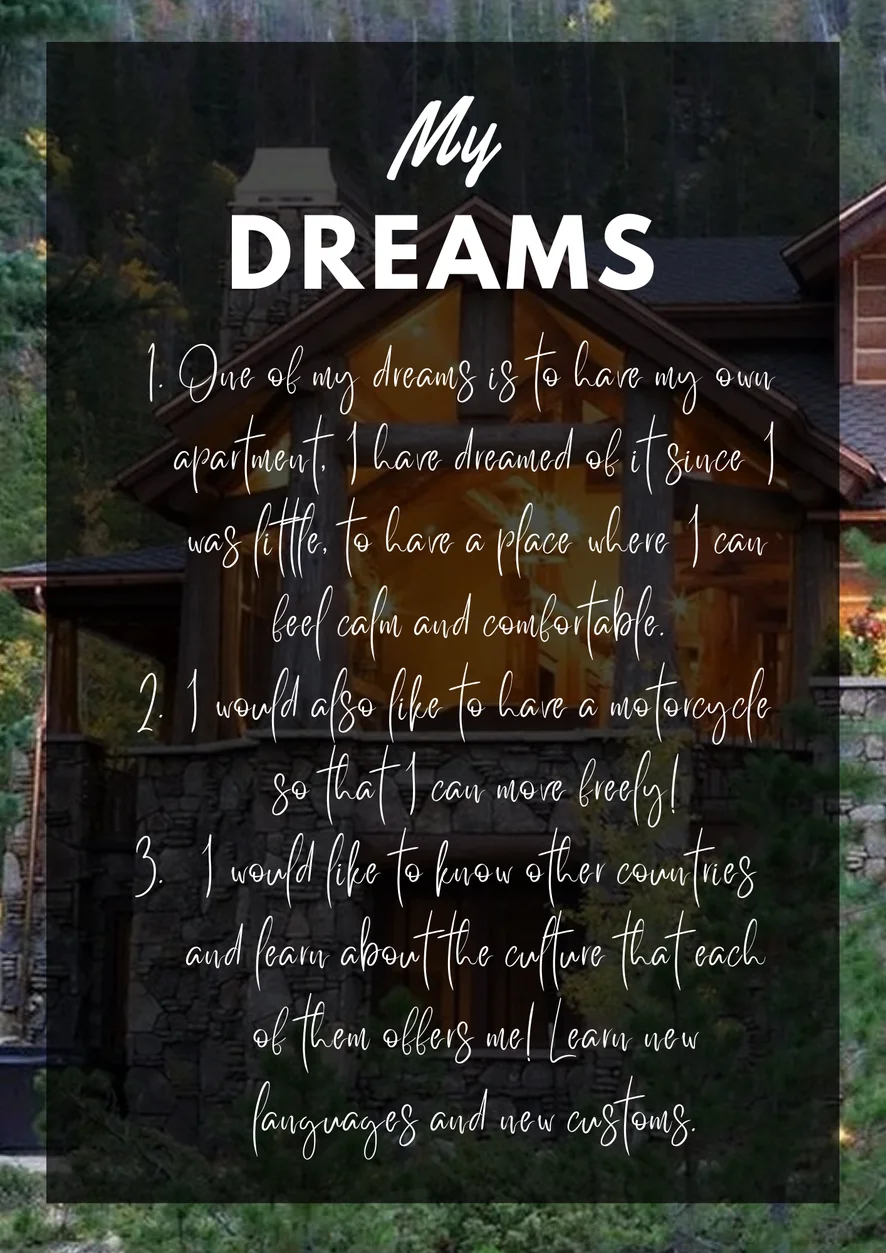 My
DREAMS
1. One of my dreams is to have my own
apartment, I have dreamed of it since I
was little, to have a place where I can
feel calm and comfortable.
2. I would also like to have a motorcycle
so that I can move freely!
3. I would like to know other countries
and learn about the culture that each
of them offers me! Learn new
languages and new customs.